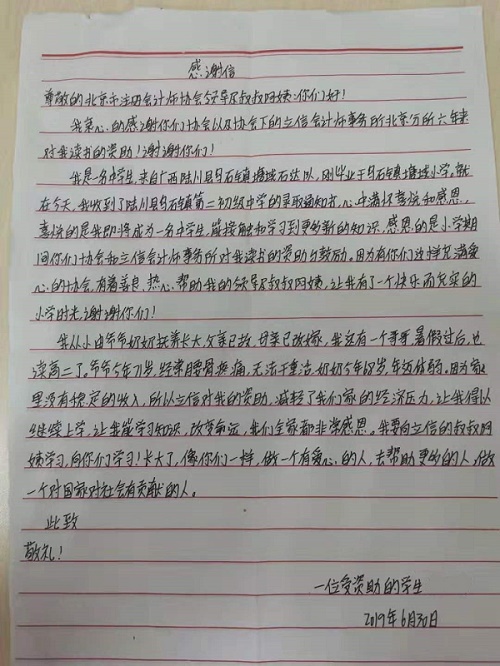 感谢信
尊敬的北京市注册会计师协会领导叔叔阿姨:你们好!
我衷心的感谢你们协会以及协会下的立信会计师事务所北京分所六年来
对我读书的资助!谢谢你们!
我是一名中学生,来自广西陆川县乌石镇塘域石达队,刚毕业于乌石镇塘域小学,就
在今天,我收到了陆川县乌石镇第二初级中学的录取通知书,心中满怀喜悦和感恩,
喜悦的是我即将成为一名中学生,能接触和学习到更多新的知识,感恩的是小学期
间你们协会和立信会计师事务所对我读书的资助与鼓励。因为有你们这样充满爱
心的协会,有着善良、热心、帮助我的领导叔叔阿姨,让我有了一个快乐而充实的
小学时光,谢谢你们!
我从小由爷爷奶奶扶养长大,父亲已故,母亲已改嫁,我还有一个哥哥暑假过后也
读高二了。爷爷今年71岁,经常腰骨疼痛,无法干重活,奶奶今年68岁,年迈体弱。因为家
里没有稳定的收入,所以立信对我的资助,减轻了我们家的经济压力,让我得以
继续上学,让我能学习知识,改变命运,我们全家都非常感恩。我要向立信的叔叔阿
姨学习,向你们学习!长大了,像你们一样,做一个有爱心的人,去帮助更多的人,做
一个对国家对社会有贡献的人。
此致
敬礼!
一位受资助的学生
2019年6月30日